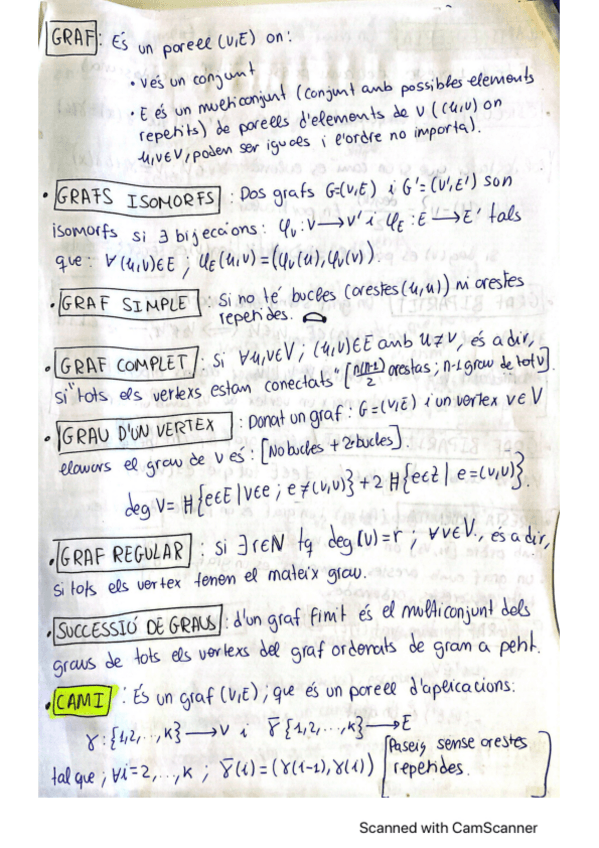 GRAF: És un parell (V,E) on:
• V és un conjunt
• E és un multiconjunt (conjunt amb possibles elements
repetits) de parells d'elements de V ((u,v) on
u,v∈V, poden ser iguals i l'ordre no importa).
• GRAFS ISOMORFS: Dos grafs G=(V,E) i G'=(V',E') són
isomorfs si ∃ bijeccions: φv: V→V' i φE: E→E' tals
que: ∀(u,v)∈E ; φE(u,v)=(φv(u),φv(v)).
• GRAF SIMPLE: Si no té bucles (arestes(u,u)) ni arestes
repetides.
• GRAF COMPLET: Si ∀u,v∈V; (u,v)∈E amb u≠v, és a dir,
si "tots els vertexs estan conectats" [n(n-1)/2 arestas; n-1 grau de tot v].
• GRAU D'UN VERTEX: Donat un graf: G=(V,E) i un vertex v∈V
elavors el grau de v és: [No bucles + 2·bucles].
deg V= #{e∈E | v∈e ; e≠(v,v)} + 2 #{e∈E | e=(v,v)}.
• GRAF REGULAR: si ∃r∈N tq deg(v)=r ; ∀v∈V., és a dir,
si tots els vertex tenen el mateix grau.
• SUCCESSIÓ DE GRAUS: d'un graf finit és el multiconjunt dels
graus de tots els vertexs del graf ordenats de gran a petit.
• CAMI: És un graf (V,E), que és un parell d'aplicacions:
γ: {1,2,..,K}→V i γ̄ {1,2,..,K}→E
tal que; ∀i=2,..,K ; γ̄(i)=(γ(i-1),γ(i)) [Paseig sense arestes
repetides.]
Scanned with CamScanner